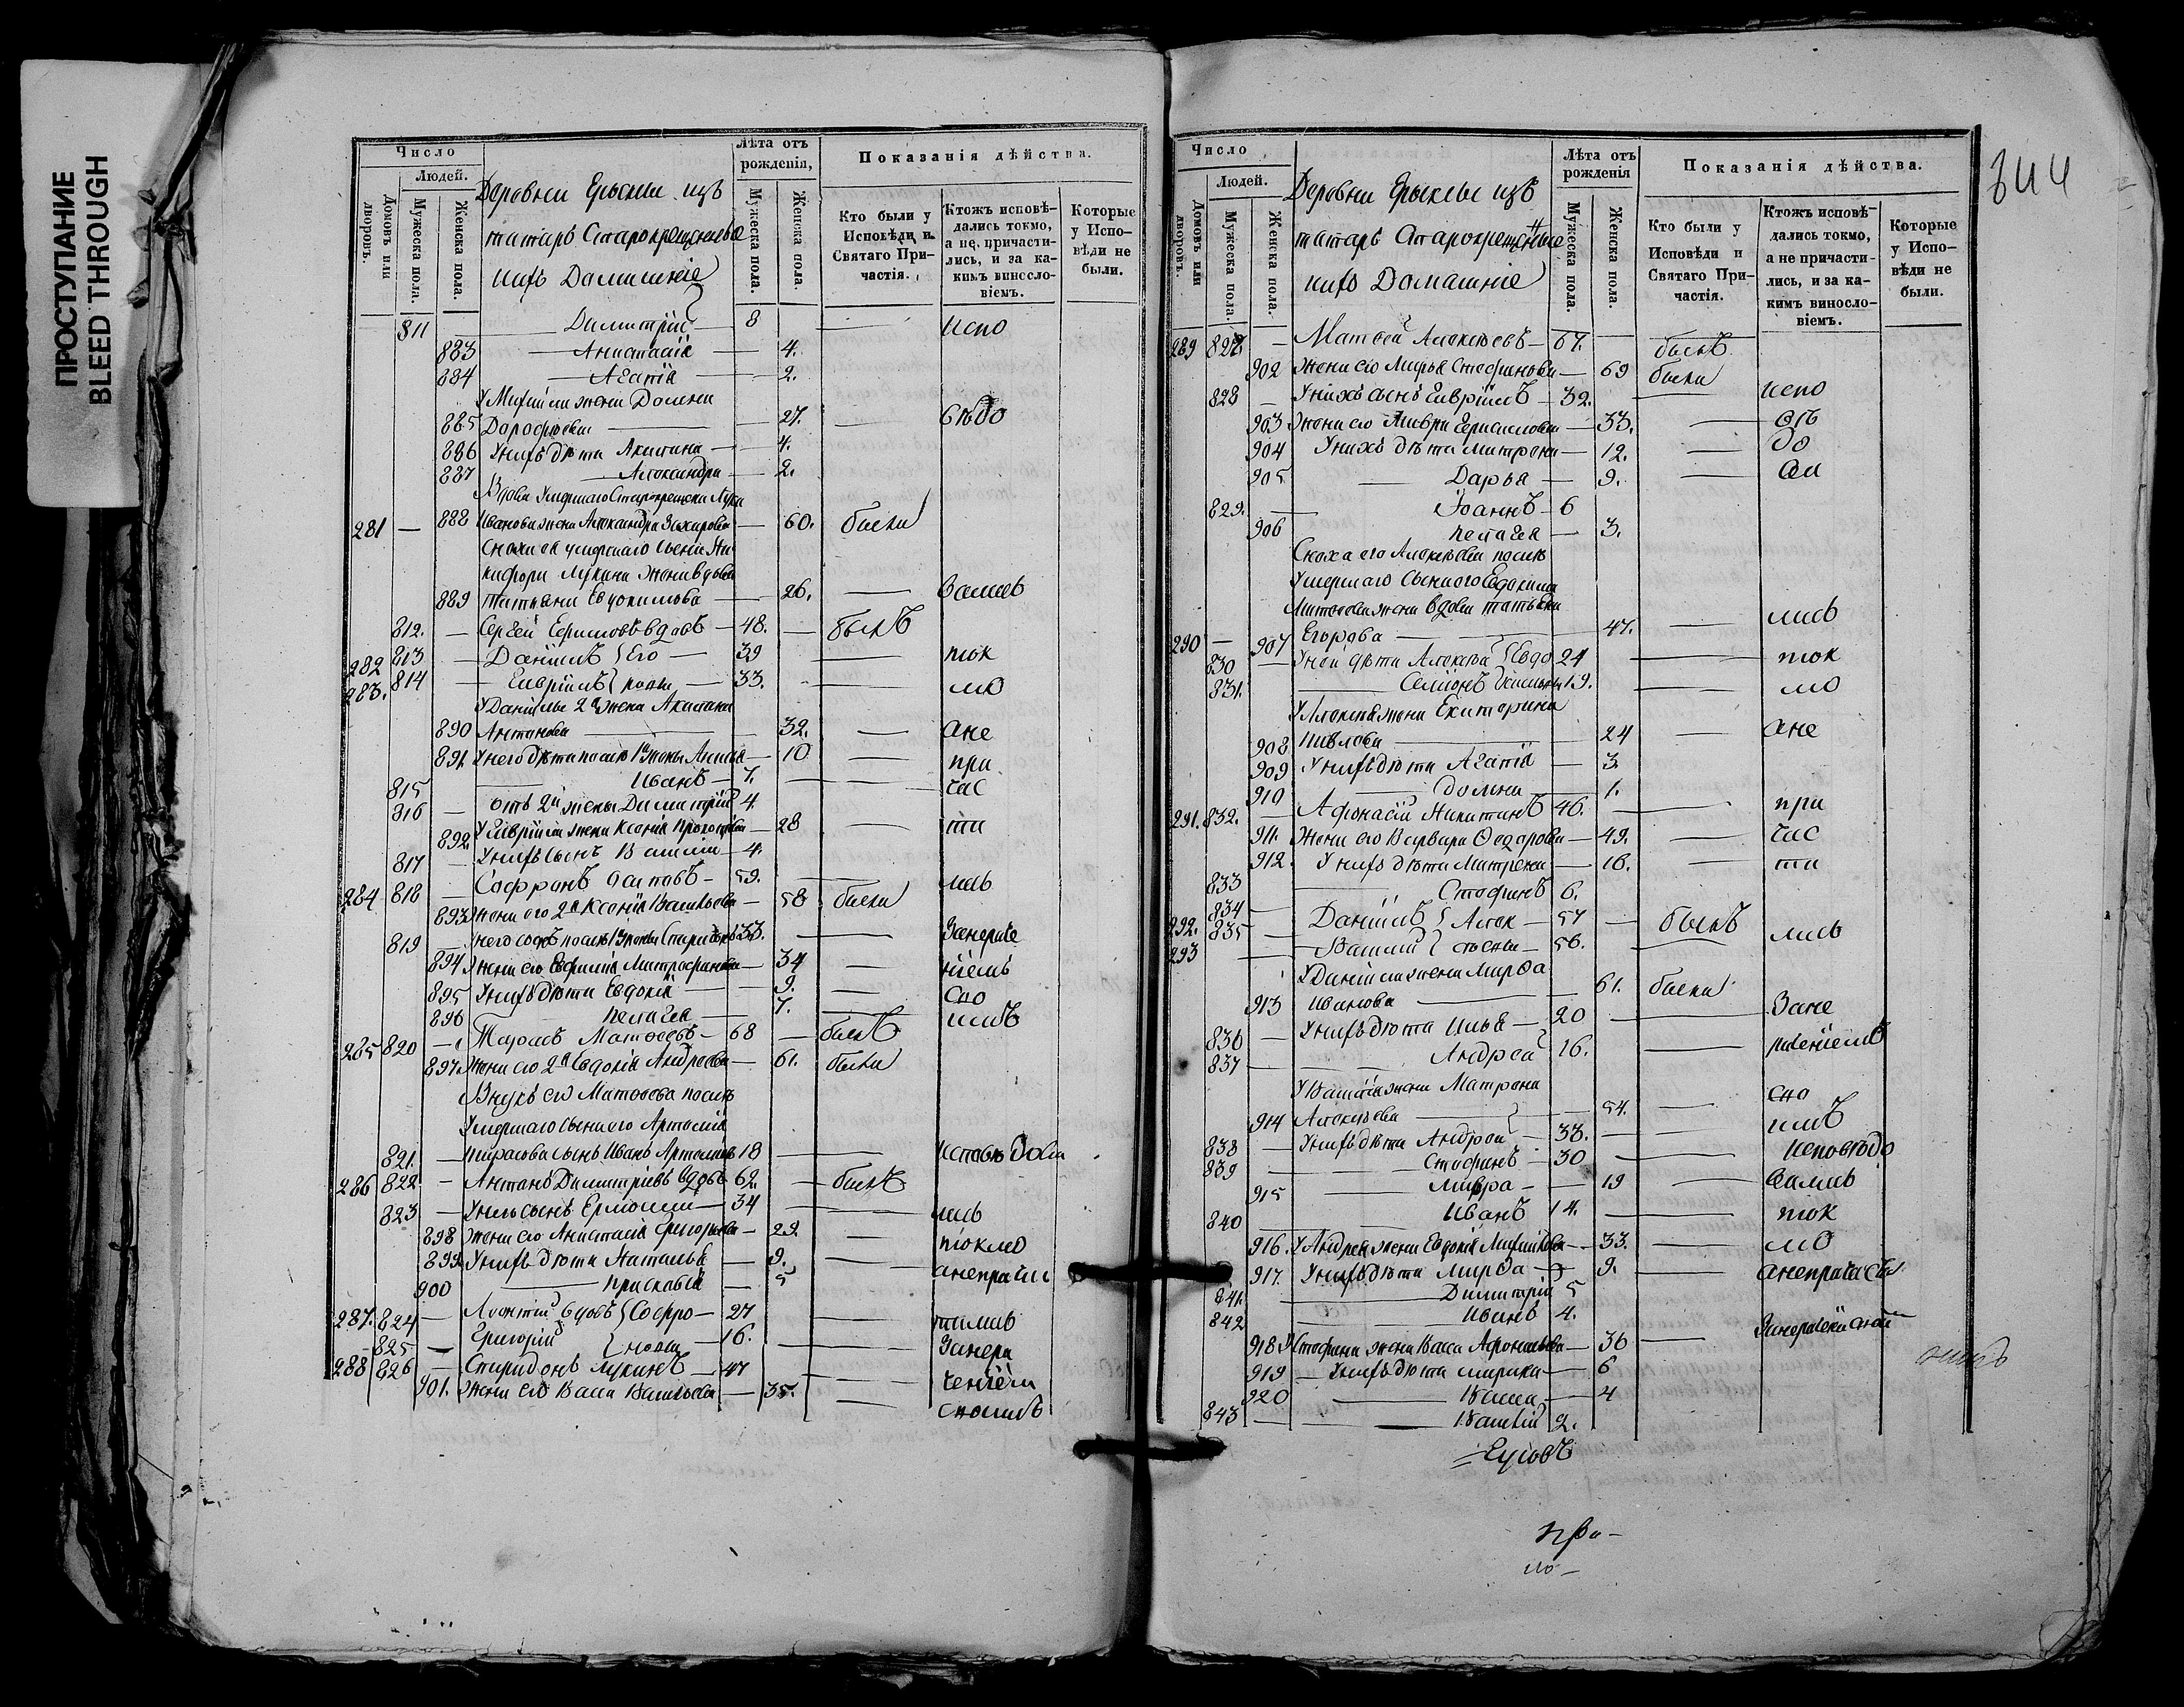 ПРОСТУПАНИЕ
BLEED THROUGH
Число
Людей.
Домовъ или дворовъ.
Мужеска пола.
Женска пола.
Деревни Ерыклы изъ
татаръ Старокрещенные
нихъ Домашніе
Лѣта отъ рожденія,
Мужеска пола.
Женска пола.
Показанія дѣйства.
Кто были у Исповѣди и Святаго Причастія.
Ктожъ исповѣдались токмо, а не причастились, и за какимъ винословіемъ.
Которые у Исповѣди не были.
811 Димитрій 8 испо
883 Анастасія 4.
884 Агапія 2.
У Михаила жена Домна
885 Дорофѣева 27. вѣдо
886 У нихъ дѣти Акилина 4.
887 Александра 2.
Вдова Умершаго Старокрещена Луки
281 — 888 Иванова жена Александра Захарова 60. была
Сноха ея умершаго сына Ни
кифора Лукина жена вдова
889 Татьяна Евдокимова 26. валась
812. Сергей Ефимовъ вдовъ 48. былъ
282 813 Даніилъ } Его 39 ток
283. 814 Гавріилъ } 33. мо
У Даніила 2я жена Акилина
890 Антонова 32. ане
891. У него дѣти послѣ 1й жены Анна 10 при
815 Иванъ 7. час
816 отъ 2й жены Димитрій 4.
892. У Гавріила жена Ксенія 28 ти
817 У нихъ сынъ Василій 4.
284 818 Софронъ 59. лась
893 Жена его 2я Ксенія Васильева 58 была
819 У него сынъ послѣ 1й жены 33. Занераче
894 Жена его Евфимія Митрофанова 34 ніемъ
895 У нихъ дѣти Евдокія 9. сно
896 Пелагея 7. имъ
285 820 Тарасъ Матвеевъ 68 былъ
897. Жена его 2я Евдокія Андреева 61. была
Внукъ его Матвеева послѣ
Умершаго сына его Артемія
821. Тарасова сынъ Иванъ Артемьевъ 18
286 822 Антонъ Димитріевъ вдовъ 62. былъ
823 У него сынъ Ермолай 34 лась
898 Жена его Анастасія Григорьева 29. токмо
899. У нихъ дѣти Наталья 9. анепричи
900 Прасковья 5
287. 824 Леонтій вдовъ } Софро 27
825 Григорій } новы 16. Занера
288 826 Спиридонъ Лукинъ 47 ченіем
901. Жена его Васса Васильева 35.
Число
Людей.
Домовъ или дворовъ.
Мужеска пола.
Женска пола.
Деревни Ерыклы изъ
татаръ Старокрещенные
нихъ Домашніе
Лѣта отъ рожденія
Мужеска пола.
Женска пола.
Показанія дѣйства.
Кто были у Исповѣди и Святаго Причастія.
Ктожъ исповѣдались токмо, а не причастились, и за какимъ винословіемъ.
Которые у Исповѣди не были.
344
289 827. Матвей Алексеевъ 67. былъ
902 Жена его Марья Стефанова 69 была
828 У нихъ сынъ Гавріилъ 32. испо
903 Жена его Мавра Герасимова 33. вѣ
904 У нихъ дѣти Матрона 12. до
905 Дарья 9. вал
829. Іоаннъ 6
906 Пелагея 3.
Сноха его Алексѣева послѣ
Умершаго сына его Евдокима
Матвеева жена вдова Татьяна
290 — 907 Егорова 47. лись
830 У ней дѣти Алексѣй } Евдо 24 ток
831. Семіонъ 19. мо
У Алексѣя жена Екатерина
908 Павлова 24 ане
909 У нихъ дѣти Агапія 3.
910 Домна 1.
291. 832. Афонасій Никитинъ 46. при
911. Жена его Варвара Ѳедорова 49. час
912. У нихъ дѣти Матрена 16. ти
833 Стефанъ 6.
292. 834 Даніилъ } Алек 57 былъ
293 835 Василій } сѣевы 56. лись
У Даніила жена Марѳа
913 Иванова 61. была Зане
836 У нихъ дѣти Илья 20
837 Андрей 16. раченіемъ
У Василія жена Матрона
914 Алексѣева 54. сно
838 У нихъ дѣти Андрей 33. имъ
839 Стефанъ 30 исповѣдо
915 Мавра 19 вались
840 Иванъ 14. ток
916. У Андрея жена Евдокія Михайлова 33. мо
917. У нихъ дѣти Марѳа 9. анепричасти
841. Димитрій 5
842 Иванъ 4.
918 У Стефана жена Васса Афонасьева 36
919 У нихъ дѣти Марина 6
920 Васса 4
843 Василій 2.